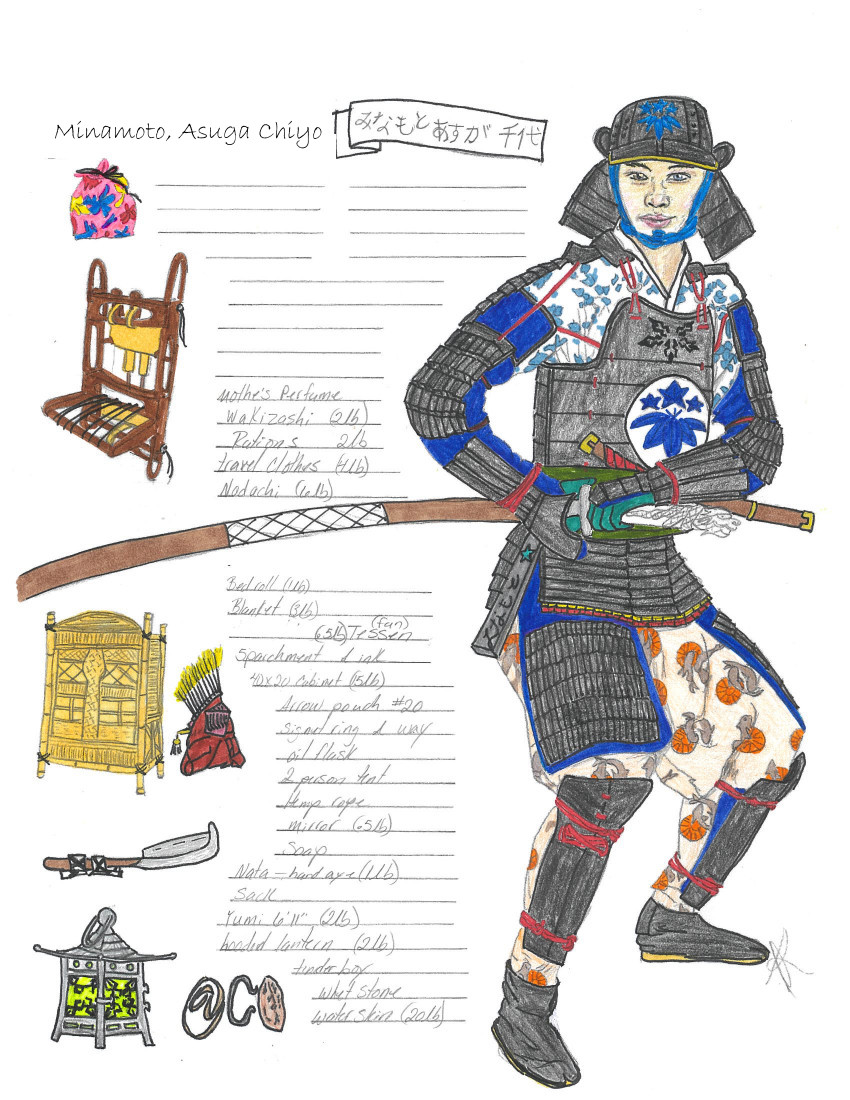 Minamoto, Asuga Chiyo
みなもと あすが 千代
mothe's Perfume
Wakizashi (2lb)
Rations 2lb
travel Clothes (4lb)
Nodachi (6lb)
Bedroll (1lb)
Blanket (3lb)
(.65lb) Tessen (fan)
5parchment & ink
40x20 Cabinet (15lb)
Arrow pouch #20
Signet ring & wax
oil flask
2 person tent
hemp rope
mirror (.65lb)
Soap
Nata - hand axe (1lb)
Sack
Yumi 6'11" (2lb)
hooded lantern (2lb)
tinder box
whet stone
water skin (20lb)